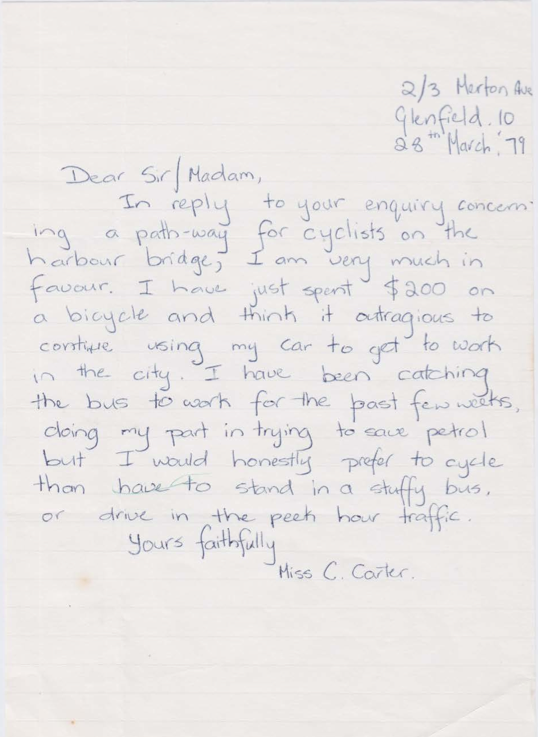 2/3 Merton Ave
Glenfield. 10
28th March. '79
Dear Sir/Madam,
In reply to your enquiry concern-
ing a path-way for cyclists on the
harbour bridge, I am very much in
favour. I have just spent $200 on
a bicycle and think it outragious to
contiue using my car to get to work
in the city. I have been catching
the bus to work for the past few weeks,
doing my part in trying to save petrol
but I would honestly prefer to cycle
than have to stand in a stuffy bus,
or drive in the peek hour traffic.
Yours faithfully
Miss C. Carter.